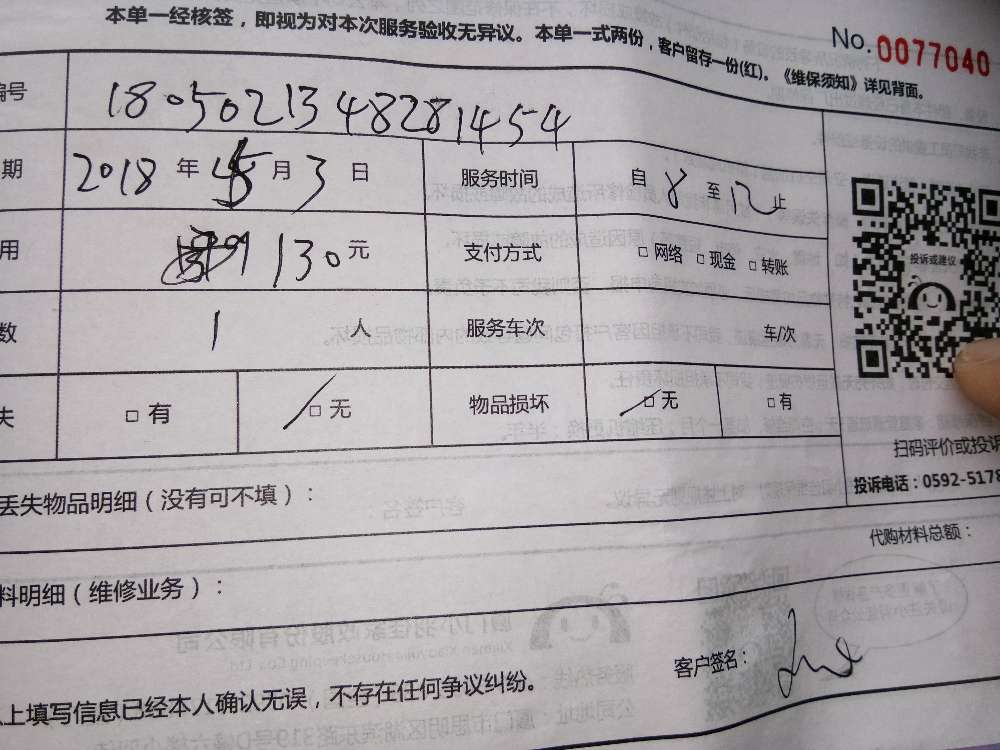 本单一经核签，即视为对本次服务验收无异议。本单一式两份，客户留存一份(红)。《维保须知》详见背面。
No. 0077040
编号 180502134828 1454
期 2018 年 5 月 3 日 服务时间 自 8 至 12 止
用 130 元 支付方式 □ 网络 □ 现金 □ 转账
数 1 人 服务车次 车/次
失 □ 有 □ 无 物品损坏 □ 无 □ 有
投诉或建议
扫码评价或投诉
投诉电话：0592-5178
丢失物品明细（没有可不填）：
代购材料总额：
料明细（维修业务）：
客户签名：
上填写信息已经本人确认无误，不存在任何争议纠纷。